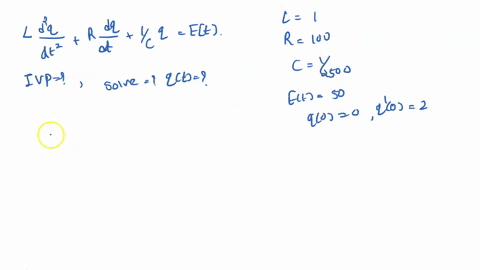 L d²q/dt² + R dq/dt + 1/C q = E(t).
IVP=?, solve=? q(t)=?
L = 1
R = 100
C = 1/2500
E(t) = 50
q(0) = 0, q'(0) = 2